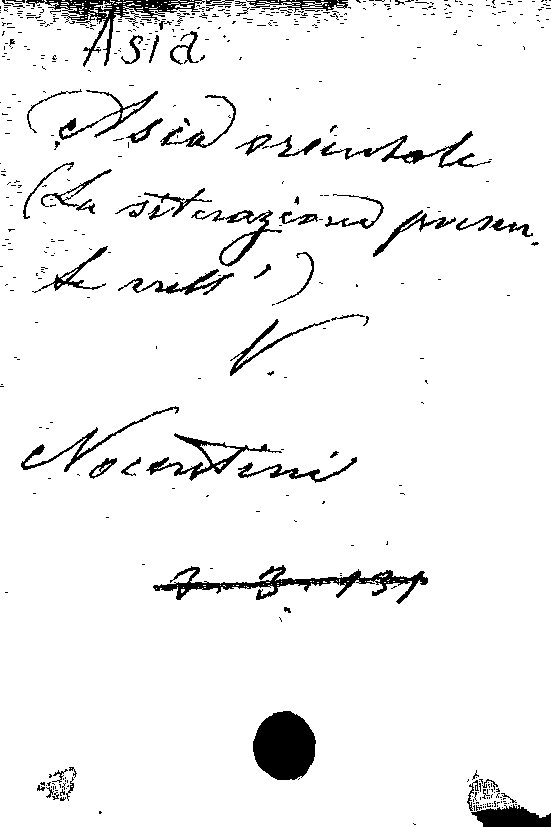 Asia
Asia orientale
(La situazione presen-
te nell')
V.
Nocentini